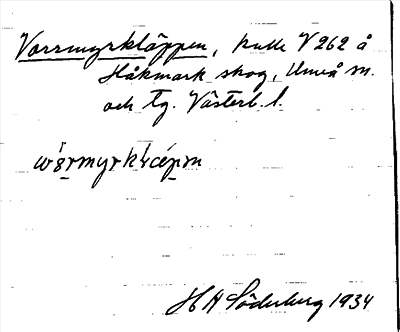 Vorrmyrkläppen, kulle V 262 å
Håkmark skog, Umeå sn.
och tg. Västerb. l.
H A Söderberg 1934